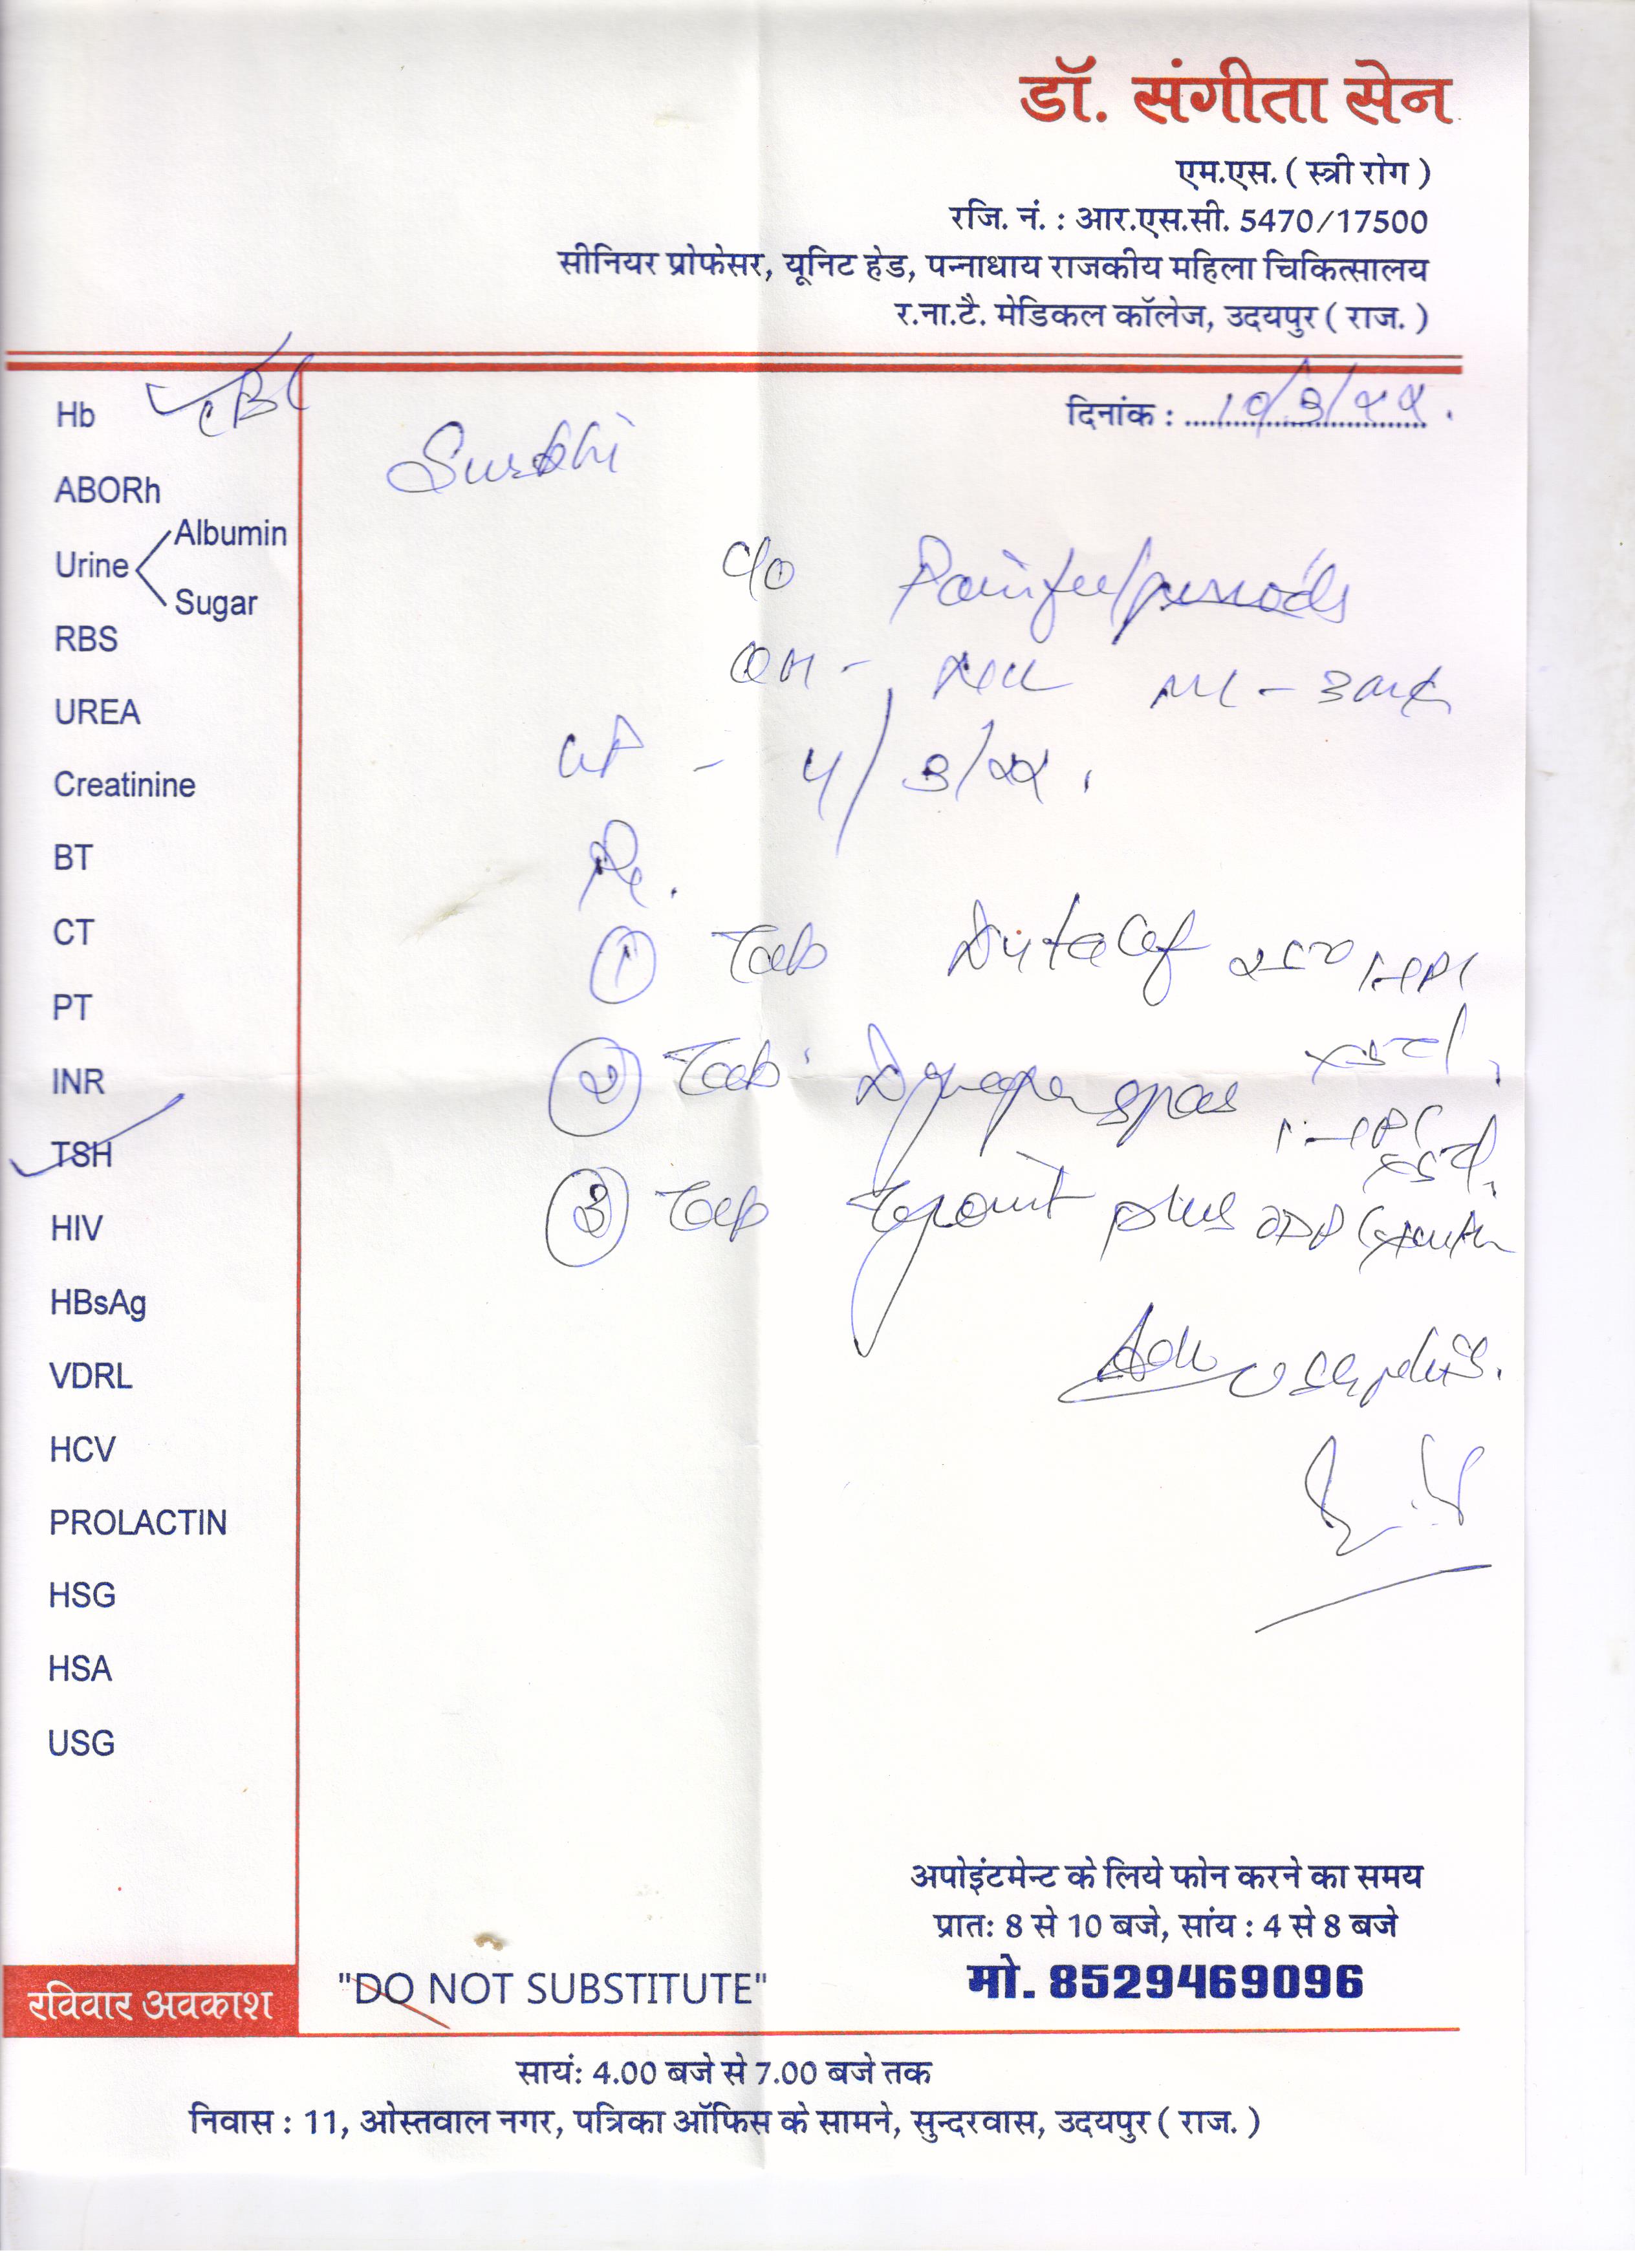 डॉ. संगीता सेन
एम.एस. ( स्त्री रोग )
रजि. नं. : आर.एस.सी. 5470/17500
सीनियर प्रोफेसर, यूनिट हेड, पन्नाधाय राजकीय महिला चिकित्सालय
र.ना.टै. मेडिकल कॉलेज, उदयपुर ( राज. )
दिनांक : 10/3/22.
Hb CBC
ABORh
Urine
Albumin
Sugar
RBS
UREA
Creatinine
BT
CT
PT
INR
TSH
HIV
HBsAg
VDRL
HCV
PROLACTIN
HSG
HSA
USG
Surbhi
c/o Painful periods
-
- 4/3/22.
Rx.
① Tab
② Tab spas
③ Tab plus
Adv
अपोइंटमेन्ट के लिये फोन करने का समय
प्रातः 8 से 10 बजे, सांय : 4 से 8 बजे
मो. 8529469096
रविवार अवकाश
"DO NOT SUBSTITUTE"
सायं: 4.00 बजे से 7.00 बजे तक
निवास : 11, ओस्तवाल नगर, पत्रिका ऑफिस के सामने, सुन्दरवास, उदयपुर ( राज. )